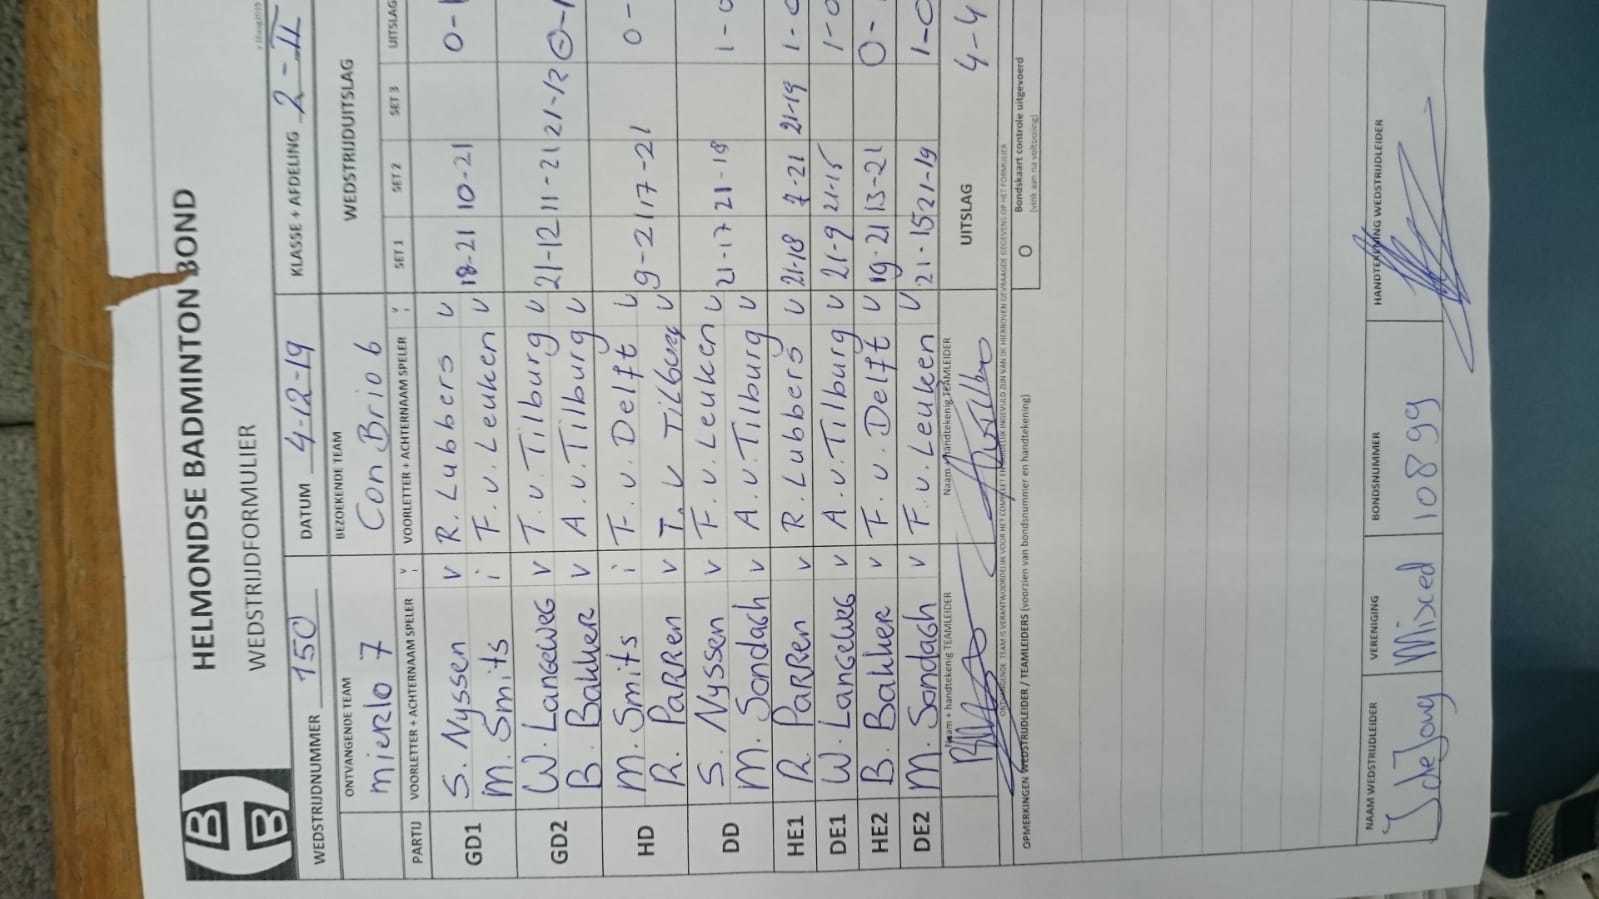 HELMONDSE BADMINTON BOND
WEDSTRIJDFORMULIER
WEDSTRIJDNUMMER 150 DATUM 4-12-19 KLASSE + AFDELING 2-II
ONTVANGENDE TEAM BEZOEKENDE TEAM WEDSTRIJDUITSLAG
mierlo 7 Con Brio 6
PARTIJ VOORLETTER + ACHTERNAAM SPELER VOORLETTER + ACHTERNAAM SPELER SET 1 SET 2 SET 3 UITSLAG
GD1 S. Nyssen v R. Lubbers v 18-21 10-21 0-1
M. Smits i F. v. Leuken v
GD2 W. Langeweg v T. v. Tilburg v 21-12 11-21 0-1
B. Bakker v A. v. Tilburg v
HD M. Smits i F. v. Delft v 9-21 17-21 0-
R. Parren v T. v Tilburg v
DD S. Nyssen v F. v. Leuken v 21-17 21-18 1-0
M. Sondagh v A. v. Tilburg v
HE1 R. Parren v R. Lubbers v 21-18 7-21 21-19 1-0
DE1 W. Langeweg v A. v. Tilburg v 21-9 21-15 1-0
HE2 B. Bakker v F. v. Delft v 19-21 13-21 0-
DE2 M. Sondagh v F. v. Leuken v 21-15 21-19 1-0
Naam + handtekenig TEAMLEIDER Naam + handtekenig TEAMLEIDER UITSLAG 4-4
OPMERKINGEN WEDSTRIJDLEIDER / TEAMLEIDERS (voorzien van bondsnummer en handtekening) O Bondskaart controle uitgevoerd
(vink aan na voltooiing)
NAAM WEDSTRIJDLEIDER VERENIGING BONDSNUMMER HANDTEKENING WEDSTRIJDLEIDER
J de Jong Mixed 10899